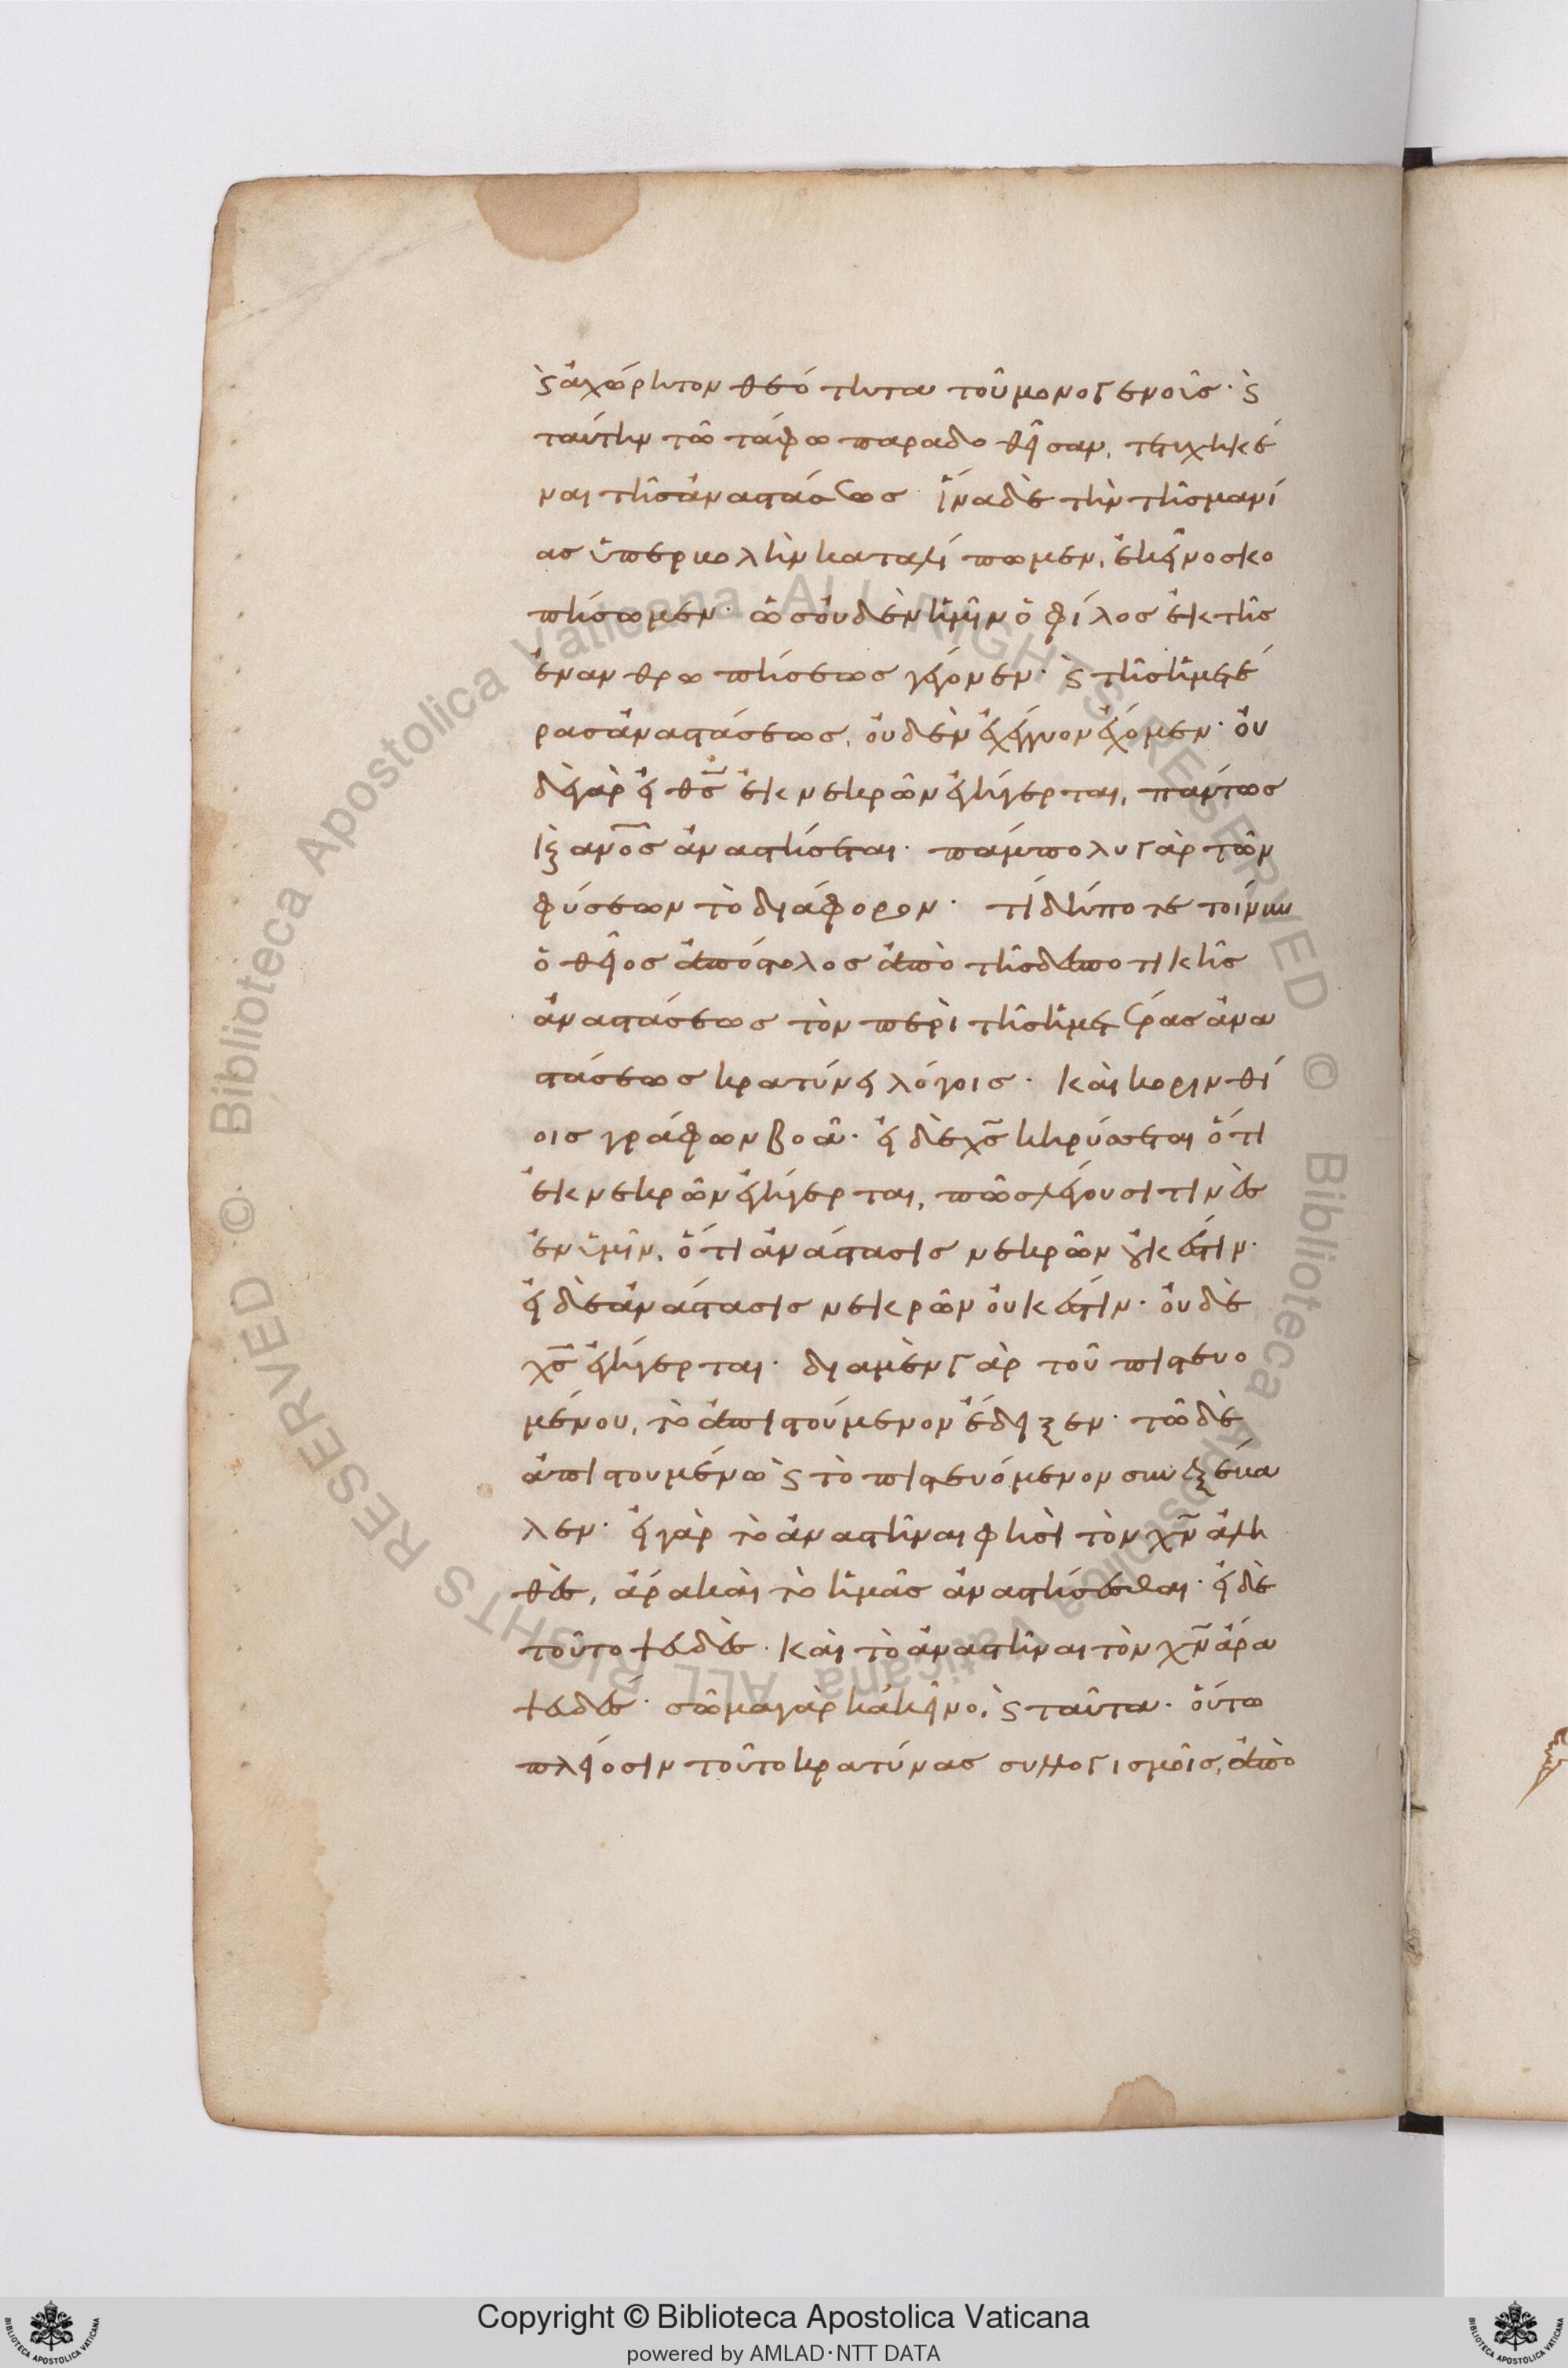 ϗ ἀχώρητον θεότητα τοῦ μονογενοῦς· ϗ
ταύτην τῶ τάφω παραδοθεῖσαν, τετυχηκέ
ναι τῆς ἀναστάσεως· ἵνα δὲ τὴν τῆς μανί
ας ὑπερβολὴν καταλείπωμεν, ἐκεῖνο σκο
πήσωμεν· ὡς οὐδὲν ἡμῖν ὄφελος ἐκ τῆς
ἐνανθρωπήσεως γέγονεν· ϗ τῆς ἡμετέ
ρας ἀναστάσεως, οὐδὲν ἐχέγγυον ἔχομεν· οὐ
δὲ γὰρ εἰ θς ἐκ νεκρῶν ἐγήγερται, πάντως
ϗ ανος ἀναστήσεται· πάμπολυ γὰρ τῶν
φύσεων τὸ διάφορον· τί δήποτε τοίνυν
ὁ θεῖος ἀπόστολος ἀπὸ τῆς δεσποτικῆς
ἀναστάσεως τὸν περὶ τῆς ἡμετέρας ἀνα
στάσεως κρατύνει λόγοις· καὶ κορινθί
οις γράφων βοᾶ· εἰ δὲ χς κηρύσσεται ὅτι
ἐκ νεκρῶν ἐγήγερται, πῶς λέγουσι τινὲς
ἐν ὑμῖν, ὅτι ἀνάστασις νεκρῶν οὐκ ἔστιν·
εἰ δὲ ἀνάστασις νεκρῶν οὐκ ἔστιν· οὐδὲ
χς ἐγήγερται· διὰ μὲν γὰρ τοῦ πιστευο
μένου, τὸ ἀπιστούμενον ἔδειξεν· τῶ δὲ
ἀπιστουμένω ϗ τὸ πιστευόμενον συνεξέβα
λεν· εἰ γὰρ τὸ ἀναστῆναι φησὶ τὸν χν ἀλη
θὲς, ἄρα καὶ τὸ ἡμᾶς ἀναστήσεσθαι· εἰ δὲ
τοῦτο ψεῦδες· καὶ τὸ ἀναστῆναι τὸν χν ἄρα
ψεῦδες· σῶμα γὰρ κἀκεῖνο, ϗ ταῦτα· οὕτω
πλείοσιν τοῦτο κρατύνας συλλογισμοῖς, ἀπὸ
Copyright © Biblioteca Apostolica Vaticana
powered by AMLAD·NTT DATA